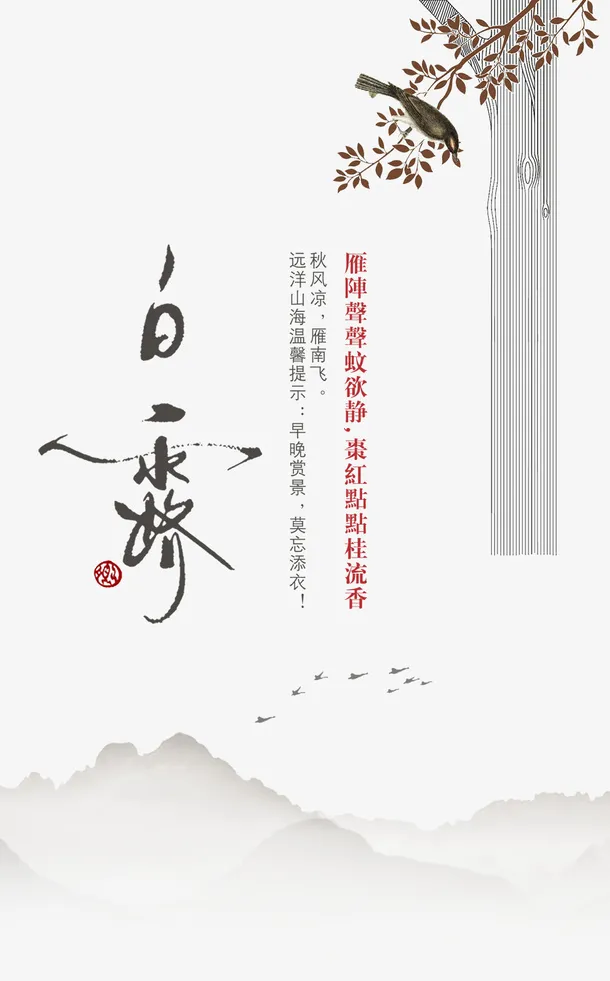 雁陣聲聲蚊欲静,棗紅點點桂流香
秋风凉，雁南飞。
远洋山海温馨提示：早晚赏景，莫忘添衣！
白露